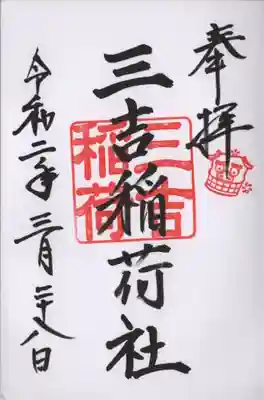 奉拝
三吉稲荷社
三吉稲荷
令和二年三月二十八日